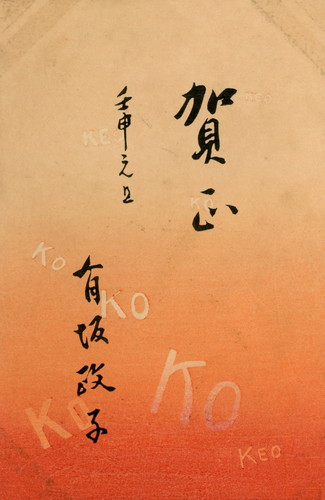 賀正
壬申元旦
有坂政子
KEO
KO
KO
KO
KO
KO
KEO